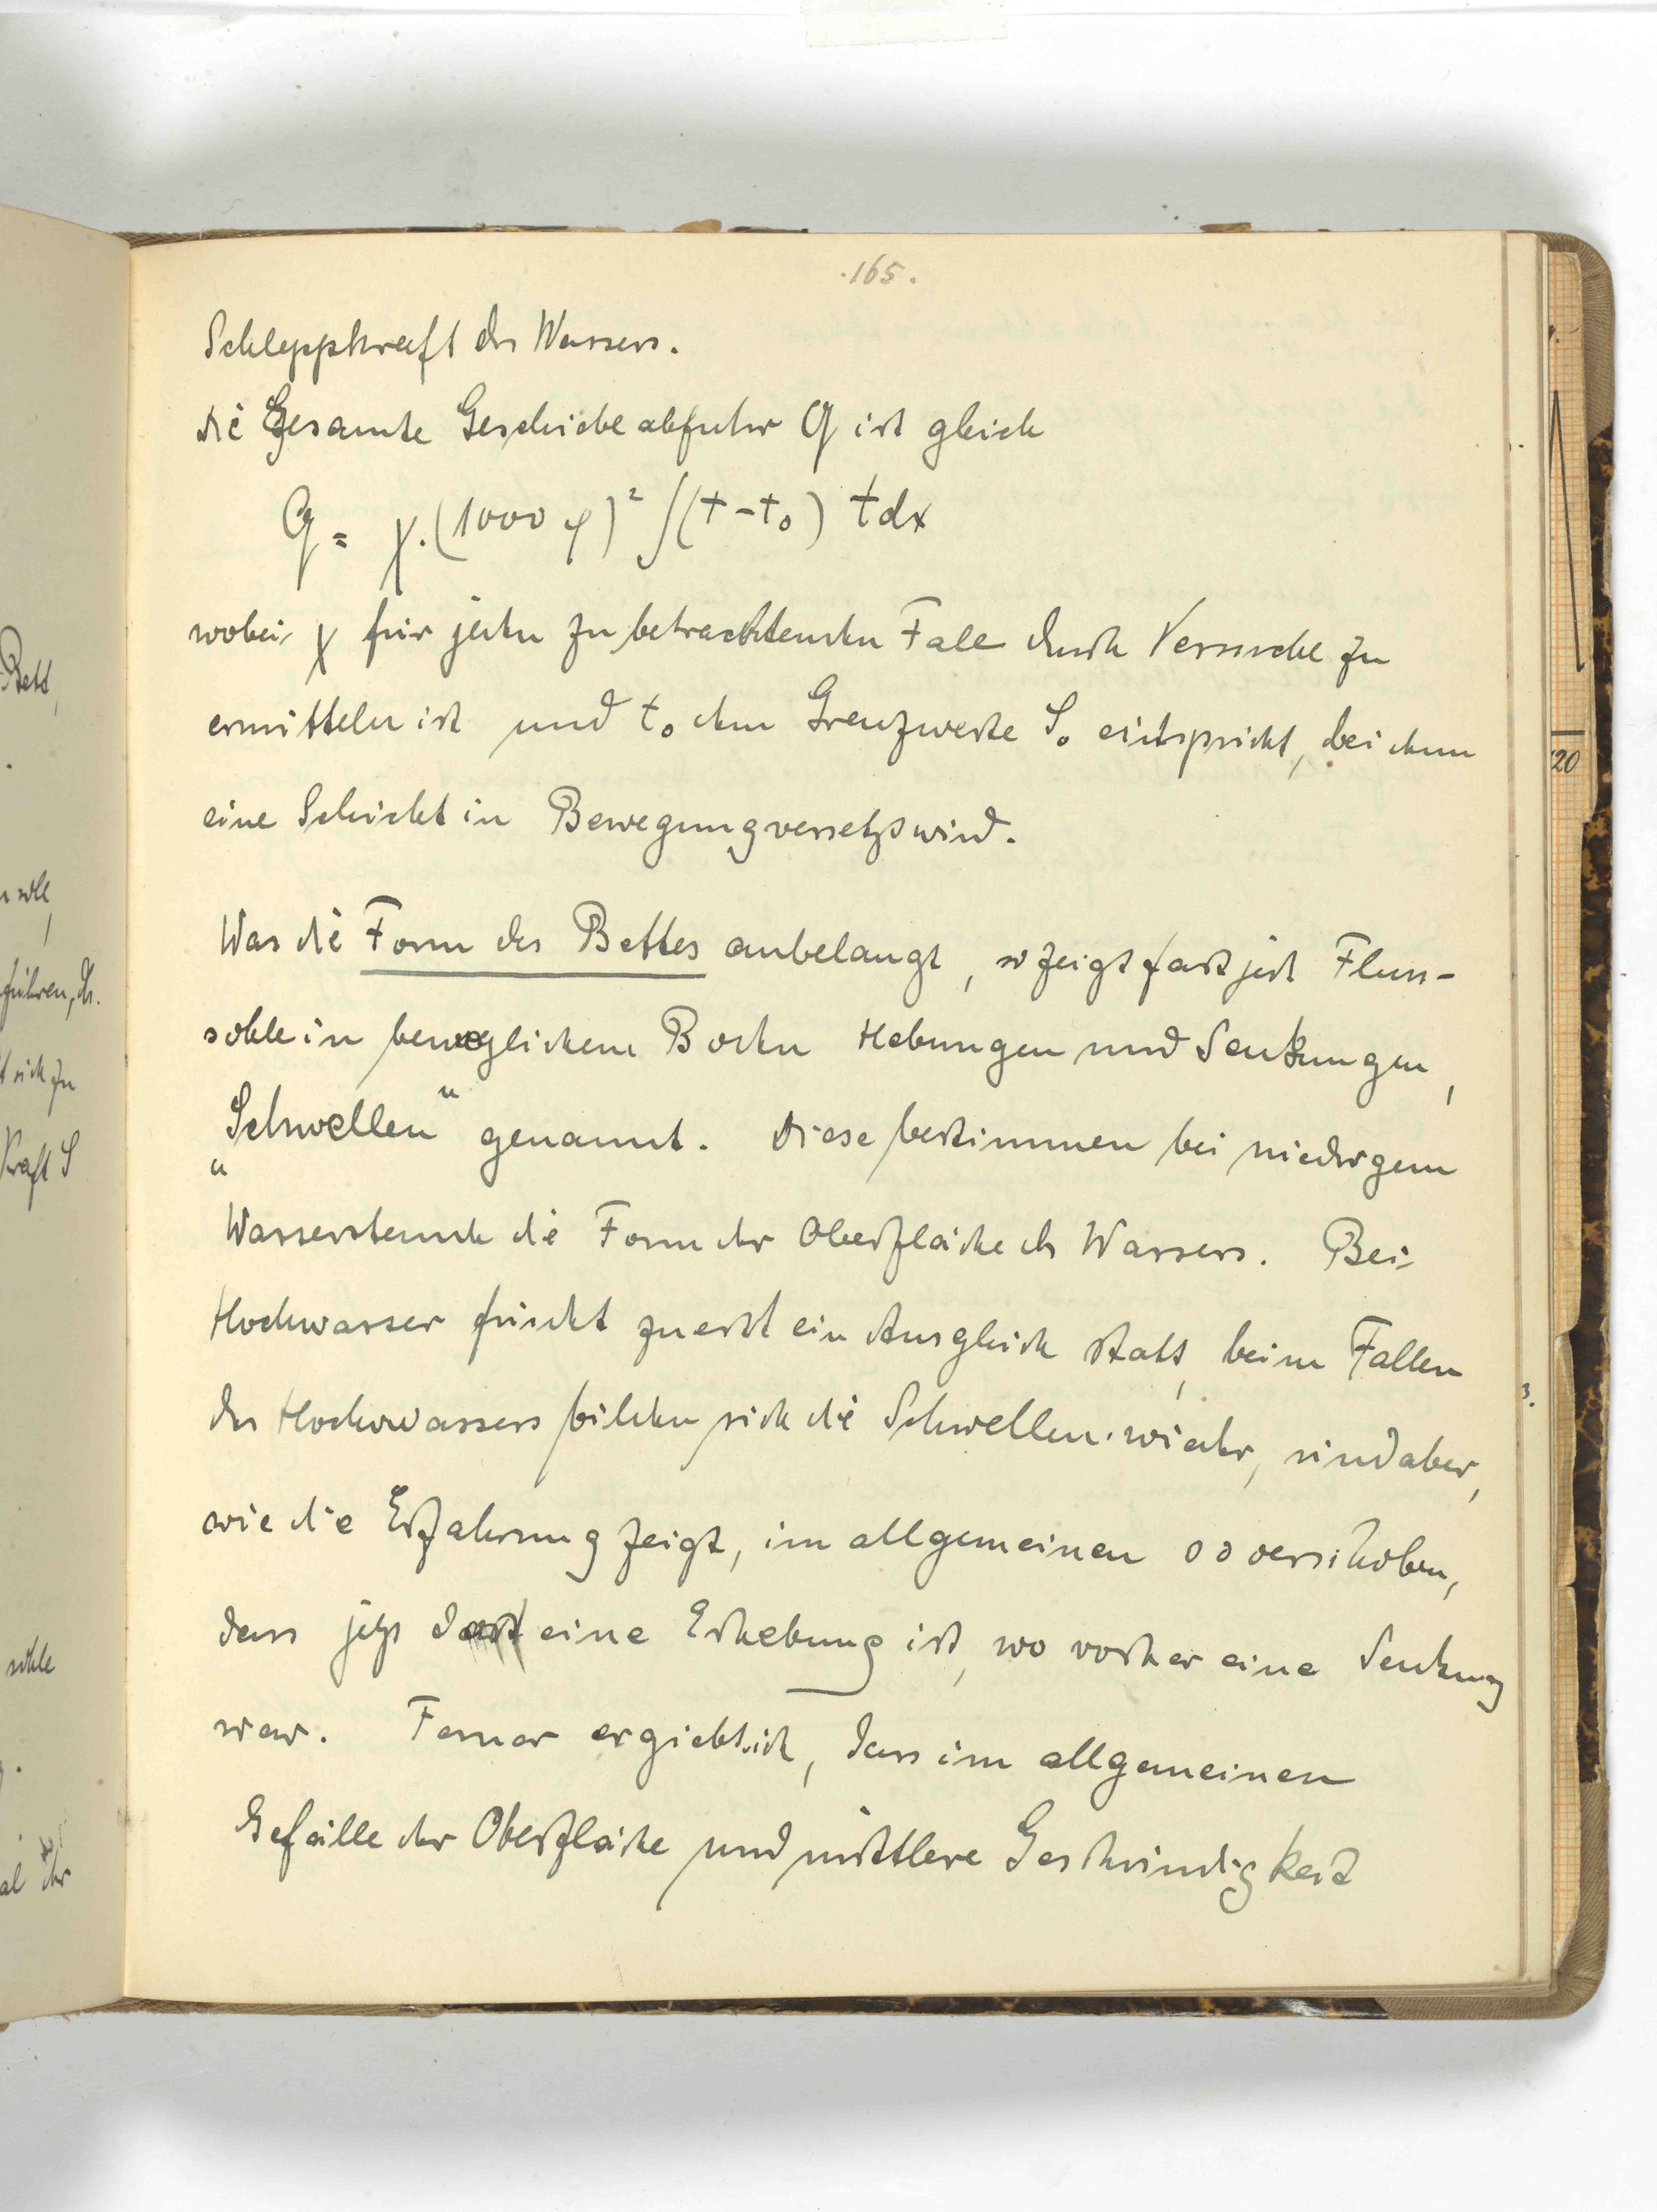 165.
Schleppkraft des Wassers.
die Gesamte Geschiebeabfuhr G ist gleich
G = χ.(1000 φ)² ∫(t-t₀) t dx
wobei χ für jeden zu betrachtenden Fall durch Versuche zu
ermitteln ist und t₀ dem Grenzwerte S₀ entspricht, bei dem
eine Schicht in Bewegung versetzt wird.
Was die Form des Bettes anbelangt, so zeigt fast jede Fluss-
sohle in beweglichem Boden Hebungen und Senkungen,
„Schwellen“ genannt. Diese bestimmen bei niedrigem
Wasserstande die Form der Oberfläche des Wassers. Bei
Hochwasser findet zuerst ein Ausgleich statt, beim Fallen
des Hochwassers bilden sich die Schwellen wieder, sind aber,
wie die Erfahrung zeigt, im allgemeinen so verschoben,
dass jetzt dort eine Erhebung ist, wo vorher eine Senkung
war. Ferner ergiebt sich, dass im allgemeinen
Gefälle der Oberfläche und mittlere Geschwindigkeit
Bett,
führen, d.
t sich zu
Kraft S
sohle
120
3.